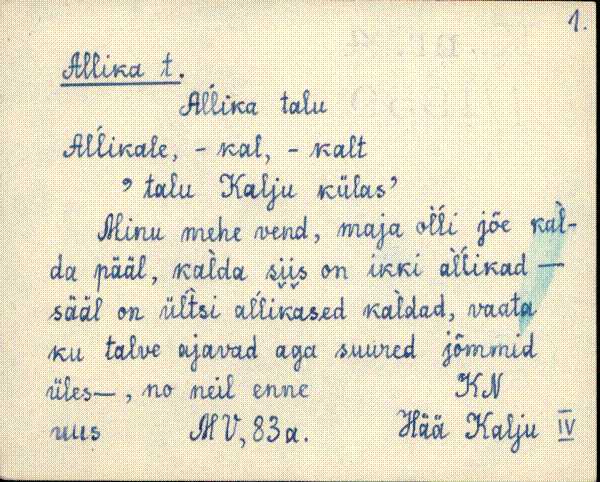 1.
Allika t.
Aĺlika talu
Aĺlikale, - kal, - kalt
, talu Kalju külas’
Minu mehe vend, maja oĺli jõe kàl-
da pääl, kàlda siis on ikki àllikad —
sääl on ült̀si aĺlikased kàldad, vaata
ku talve ajavad aga suured jõmmid
üles—, no neil enne KN
uus MV, 83a. Hää Kalju IV